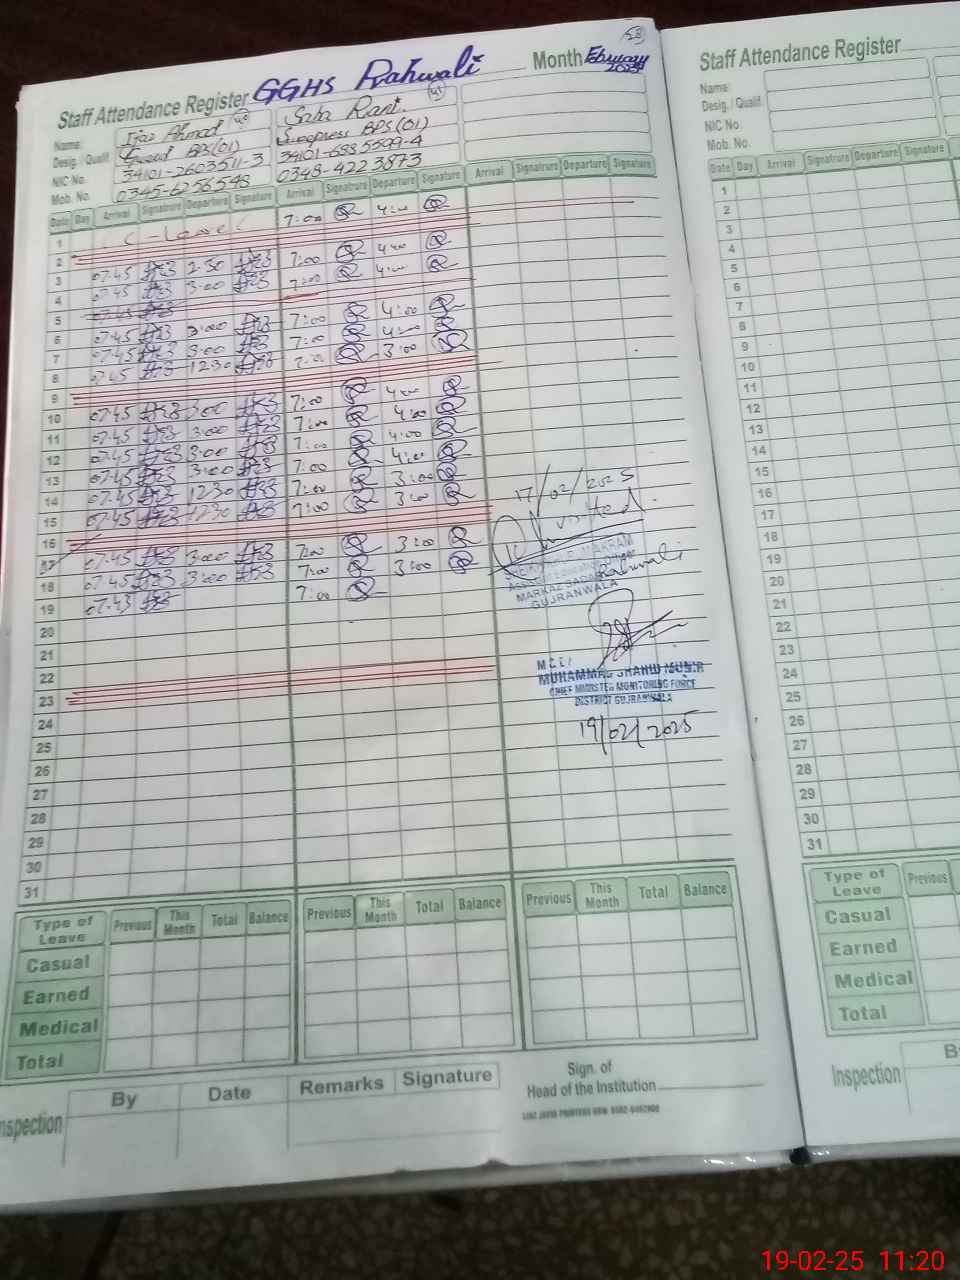 58
Staff Attendance Register GGHS Rahwali Month February 2025
Name: Ijaz Ahmad Saba Rani
Desig. / Qualif. Guard BPS(01) Sweepress BPS(01)
NIC No. 34101-2603511-3 34101-6885599-4
Mob. No. 0345-6256548 0348-4223873
Date Day Arrival Signature Departure Signature Arrival Signature Departure Signature Arrival Signature Departure Signature
1 C-leave 7:00 4:00
2
3 07:45 2:30 7:00 4:00
4 07:45 3:00 7:00 4:00
5 07:45
6 07:45 3:00 7:00 4:00
7 07:45 3:00 7:00 4:00
8 07:45 12:30 7:00 3:00
9
10 07:45 3:00 7:00 4:00
11 07:45 3:00 7:00 4:00
12 07:45 3:00 7:00 4:00
13 07:45 3:00 7:00 4:00
14 07:45 12:30 7:00 3:00
15 07:45 12:30 7:00 3:00
16
17 07:45 3:00 7:00 3:00
18 07:45 3:00 7:00 3:00
19 07:43 7:00
20
21
22
23
24
25
26
27
28
29
30
31
17/02/2025
Visited
Rahwali
GUJRANWALA
CHIEF MINISTER MONITORING FORCE
DISTRICT GUJRANWALA
19/02/2025
Type of Leave Previous This Month Total Balance Previous This Month Total Balance Previous This Month Total Balance
Casual
Earned
Medical
Total
Inspection By Date Remarks Signature
Sign. of
Head of the Institution
Staff Attendance Register
Name:
Desig. / Qualif.
NIC No.
Mob. No.
Date Day Arrival Signature Departure Signature
1
2
3
4
5
6
7
8
9
10
11
12
13
14
15
16
17
18
19
20
21
22
23
24
25
26
27
28
29
30
31
Type of Leave Previous
Casual
Earned
Medical
Total
Inspection
19-02-25 11:20